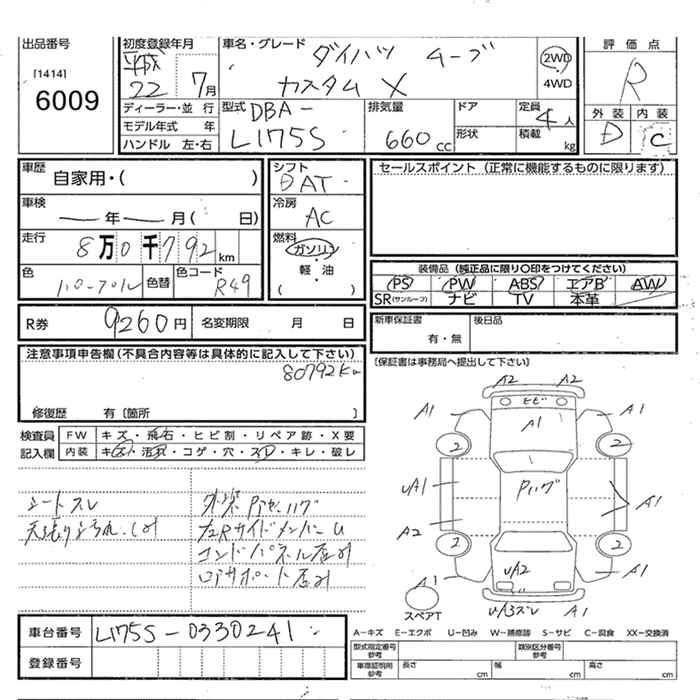 出品番号
[1414]
6009
初度登録年月
平成
22 7月
車名・グレード
ダイハツ ムーブ
カスタム X
2WD
4WD
評価点
R
ディーラー・並行
モデル年式 年
ハンドル 左・右
型式 DBA-
L175S
排気量
660cc
ドア
形状
定員
4人
積載
kg
外装 内装
D C
車歴
自家用・( )
車検
—年—月( )
走行
8万0千792km
色
色替
色コード
R49
シフト
DAT
冷房
AC
燃料
ガソリン
軽・油
( )
セールスポイント (正常に機能するものに限ります)
装備品 (純正品に限り○印をつけてください)
PS PW ABS エアB AW
SR(サンルーフ) ナビ TV 本革
R券 9260円 名変期限 月 日
新車保証書
有・無
後日品
(保証書は事務局へ提出して下さい)
注意事項申告欄(不具合内容等は具体的に記入して下さい)
80792Km
修復歴 有〔箇所 〕
検査員 FW キズ・飛石・ヒビ割・リペア跡・X要
記入欄 内装 キズ・汚れ・コゲ・穴・スレ・キレ・破レ
シートスレ
天張り
左Rサイドメンバー U
A2 A2
ヒビ
A1 A1 A1
2 2
uA1 A1
A2
2 2
uA2
A1 A1
A1
スペアT
車台番号 L175S-0330241
登録番号
A-キズ E-エクボ U-凹み W-補修跡 S-サビ C-腐食 XX-交換済
型式指定番号
参考
類別区分番号
参考
車庫証明用
参考
長さ cm 幅 cm 高さ cm